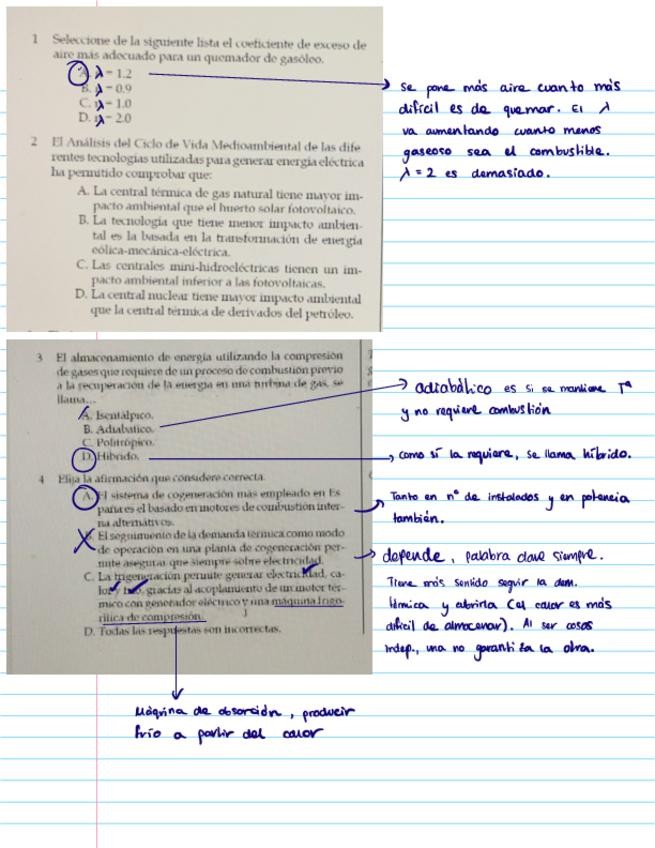 1 Seleccione de la siguiente lista el coeficiente de exceso de
aire más adecuado para un quemador de gasóleo.
A. λ = 1.2
B. λ = 0.9
C. λ = 1.0
D. λ = 2.0
se pone más aire cuanto más
difícil es de quemar. El λ
va aumentando cuanto menos
gaseoso sea el combustible.
λ = 2 es demasiado.
2 El Análisis del Ciclo de Vida Medioambiental de las dife
rentes tecnologías utilizadas para generar energía eléctrica
ha permitido comprobar que:
A. La central térmica de gas natural tiene mayor im-
pacto ambiental que el huerto solar fotovoltaico.
B. La tecnología que tiene menor impacto ambien-
tal es la basada en la transformación de energía
eólica-mecánica-eléctrica.
C. Las centrales mini-hidroeléctricas tienen un im-
pacto ambiental inferior a las fotovoltaicas.
D. La central nuclear tiene mayor impacto ambiental
que la central térmica de derivados del petróleo.
3 El almacenamiento de energía utilizando la compresión
de gases que requiere de un proceso de combustión previo
a la recuperación de la energía en una turbina de gas, se
llama...
A. Isentálpico.
B. Adiabático.
C. Politrópico.
D. Híbrido.
adiabático es si se mantiene Tª
y no requiere combustión
como sí la requiere, se llama híbrido.
4 Elija la afirmación que considere correcta.
A. El sistema de cogeneración más empleado en Es
paña es el basado en motores de combustión inter-
na alternativos.
B. El seguimiento de la demanda térmica como modo
de operación en una planta de cogeneración per-
mite asegurar que siempre sobre electricidad.
C. La trigeneración permite generar electricidad, ca-
lor y frío, gracias al acoplamiento de un motor tér-
mico con generador eléctrico y una máquina frigo-
rífica de compresión.
D. Todas las respuestas son incorrectas.
Tanto en nº de instalados y en potencia
también.
depende, palabra clave siempre.
Tiene más sentido seguir la dem.
térmica y abrirla (el calor es más
difícil de almacenar). Al ser cosas
indep., una no garantiza la otra.
Máquina de absorción, producir
frío a partir del calor